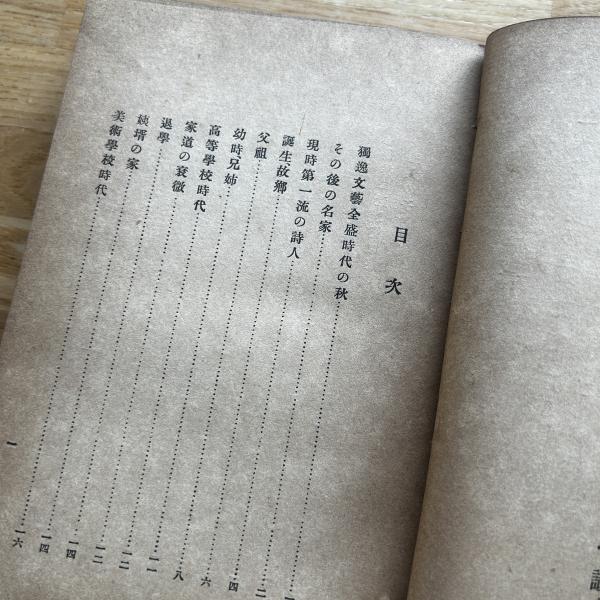 目次
獨逸文藝全盛時代の秋……一
その後の名家……二
現時第一流の詩人……四
誕生、故鄕……六
父祖……八
幼時、兄姉……一一
高等學校時代……一二
家道の衰微……一二
退學……一四
姨壻の家……一四
美術學校時代……一六
一